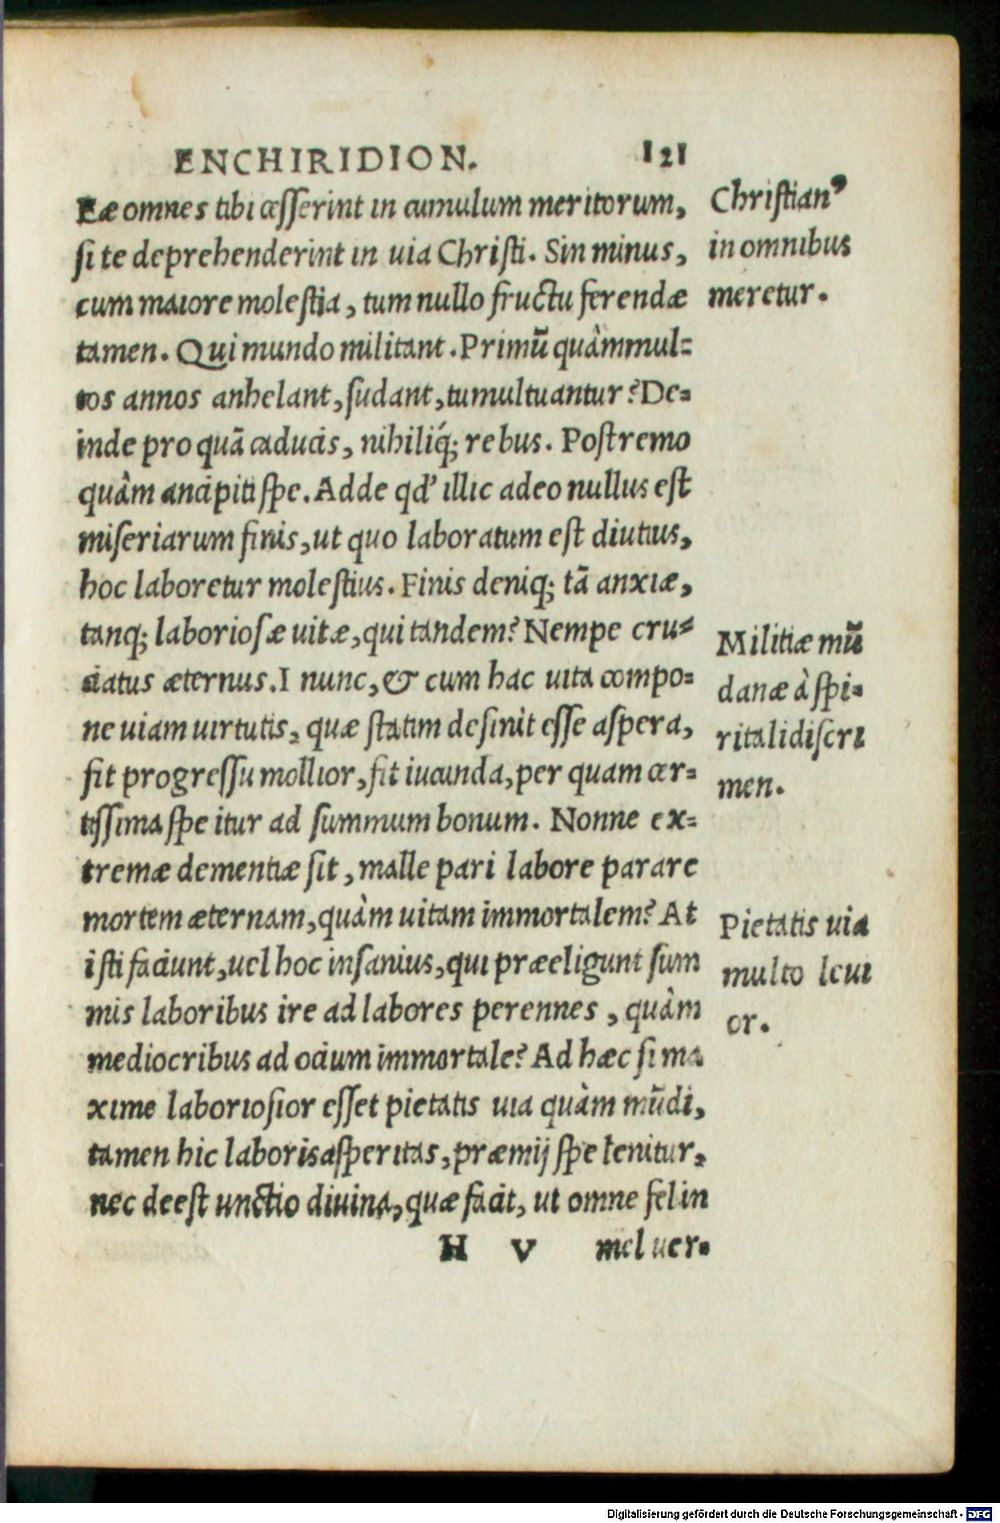 ENCHIRIDION. 121
Eæ omnes tibi cesserint in cumulum meritorum,
si te deprehenderint in uia Christi. Sin minus,
cum maiore molestia, tum nullo fructu ferendæ
tamen. Qui mundo militant. Primũ quàm mul-
tos annos anhelant, sudant, tumultuantur? De-
inde pro quã caducis, nihiliq́; rebus. Postremo
quàm ancipiti spe. Adde qd' illic adeo nullus est
miseriarum finis, ut quo laboratum est diutius,
hoc laboretur molestius. Finis deniq; tã anxiæ,
tanq; laboriosæ uitæ, qui tandem? Nempe cru-
ciatus æternus. I nunc, & cum hac uita compo-
ne uiam uirtutis, quæ statim desinit esse aspera,
fit progressu mollior, fit iucunda, per quam cer-
tissima spe itur ad summum bonum. Nonne ex-
tremæ dementiæ sit, malle pari labore parare
mortem æternam, quàm uitam immortalem? At
isti faciunt, uel hoc insanius, qui præeligunt sum
mis laboribus ire ad labores perennes, quàm
mediocribus ad ocium immortale? Ad hæc si ma
xime laboriosior esset pietatis uia quàm mũdi,
tamen hic laboris asperitas, præmij spe lenitur,
nec deest unctio diuina, quæ facit, ut omne fel in
H V mel uer-
Christianꝰ
in omnibus
meretur.
Militiæ mũ
danæ à spi-
ritali discri
men.
Pietatis uia
multo leui
or.
Digitalisierung gefördert durch die Deutsche Forschungsgemeinschaft - DFG